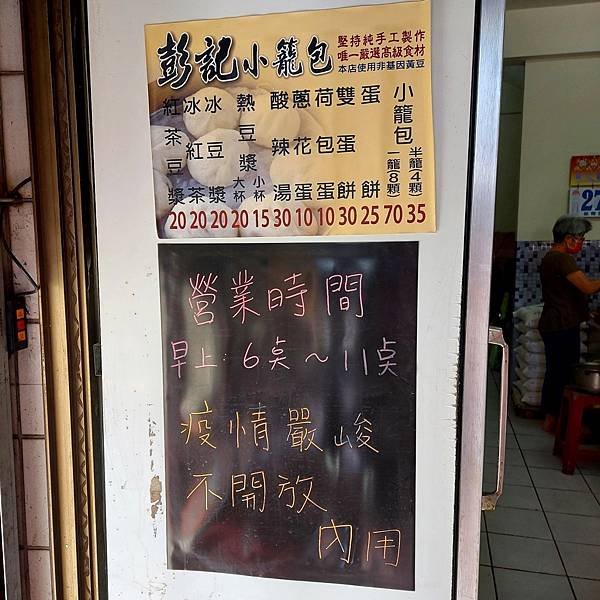 彭記小籠包
堅持純手工製作
唯一嚴選高級食材
本店使用非基因黃豆
小籠包
一籠(8顆)
半籠4顆
蛋餅
雙蛋餅
荷包蛋
蔥花蛋
酸辣湯
熱豆漿
大杯
小杯
冰豆漿
冰紅茶
紅茶豆漿
20 20 20 20 15 30 10 10 30 25 70 35
營業時間
早上:6点～11点
疫情嚴峻
不開放
內用
27